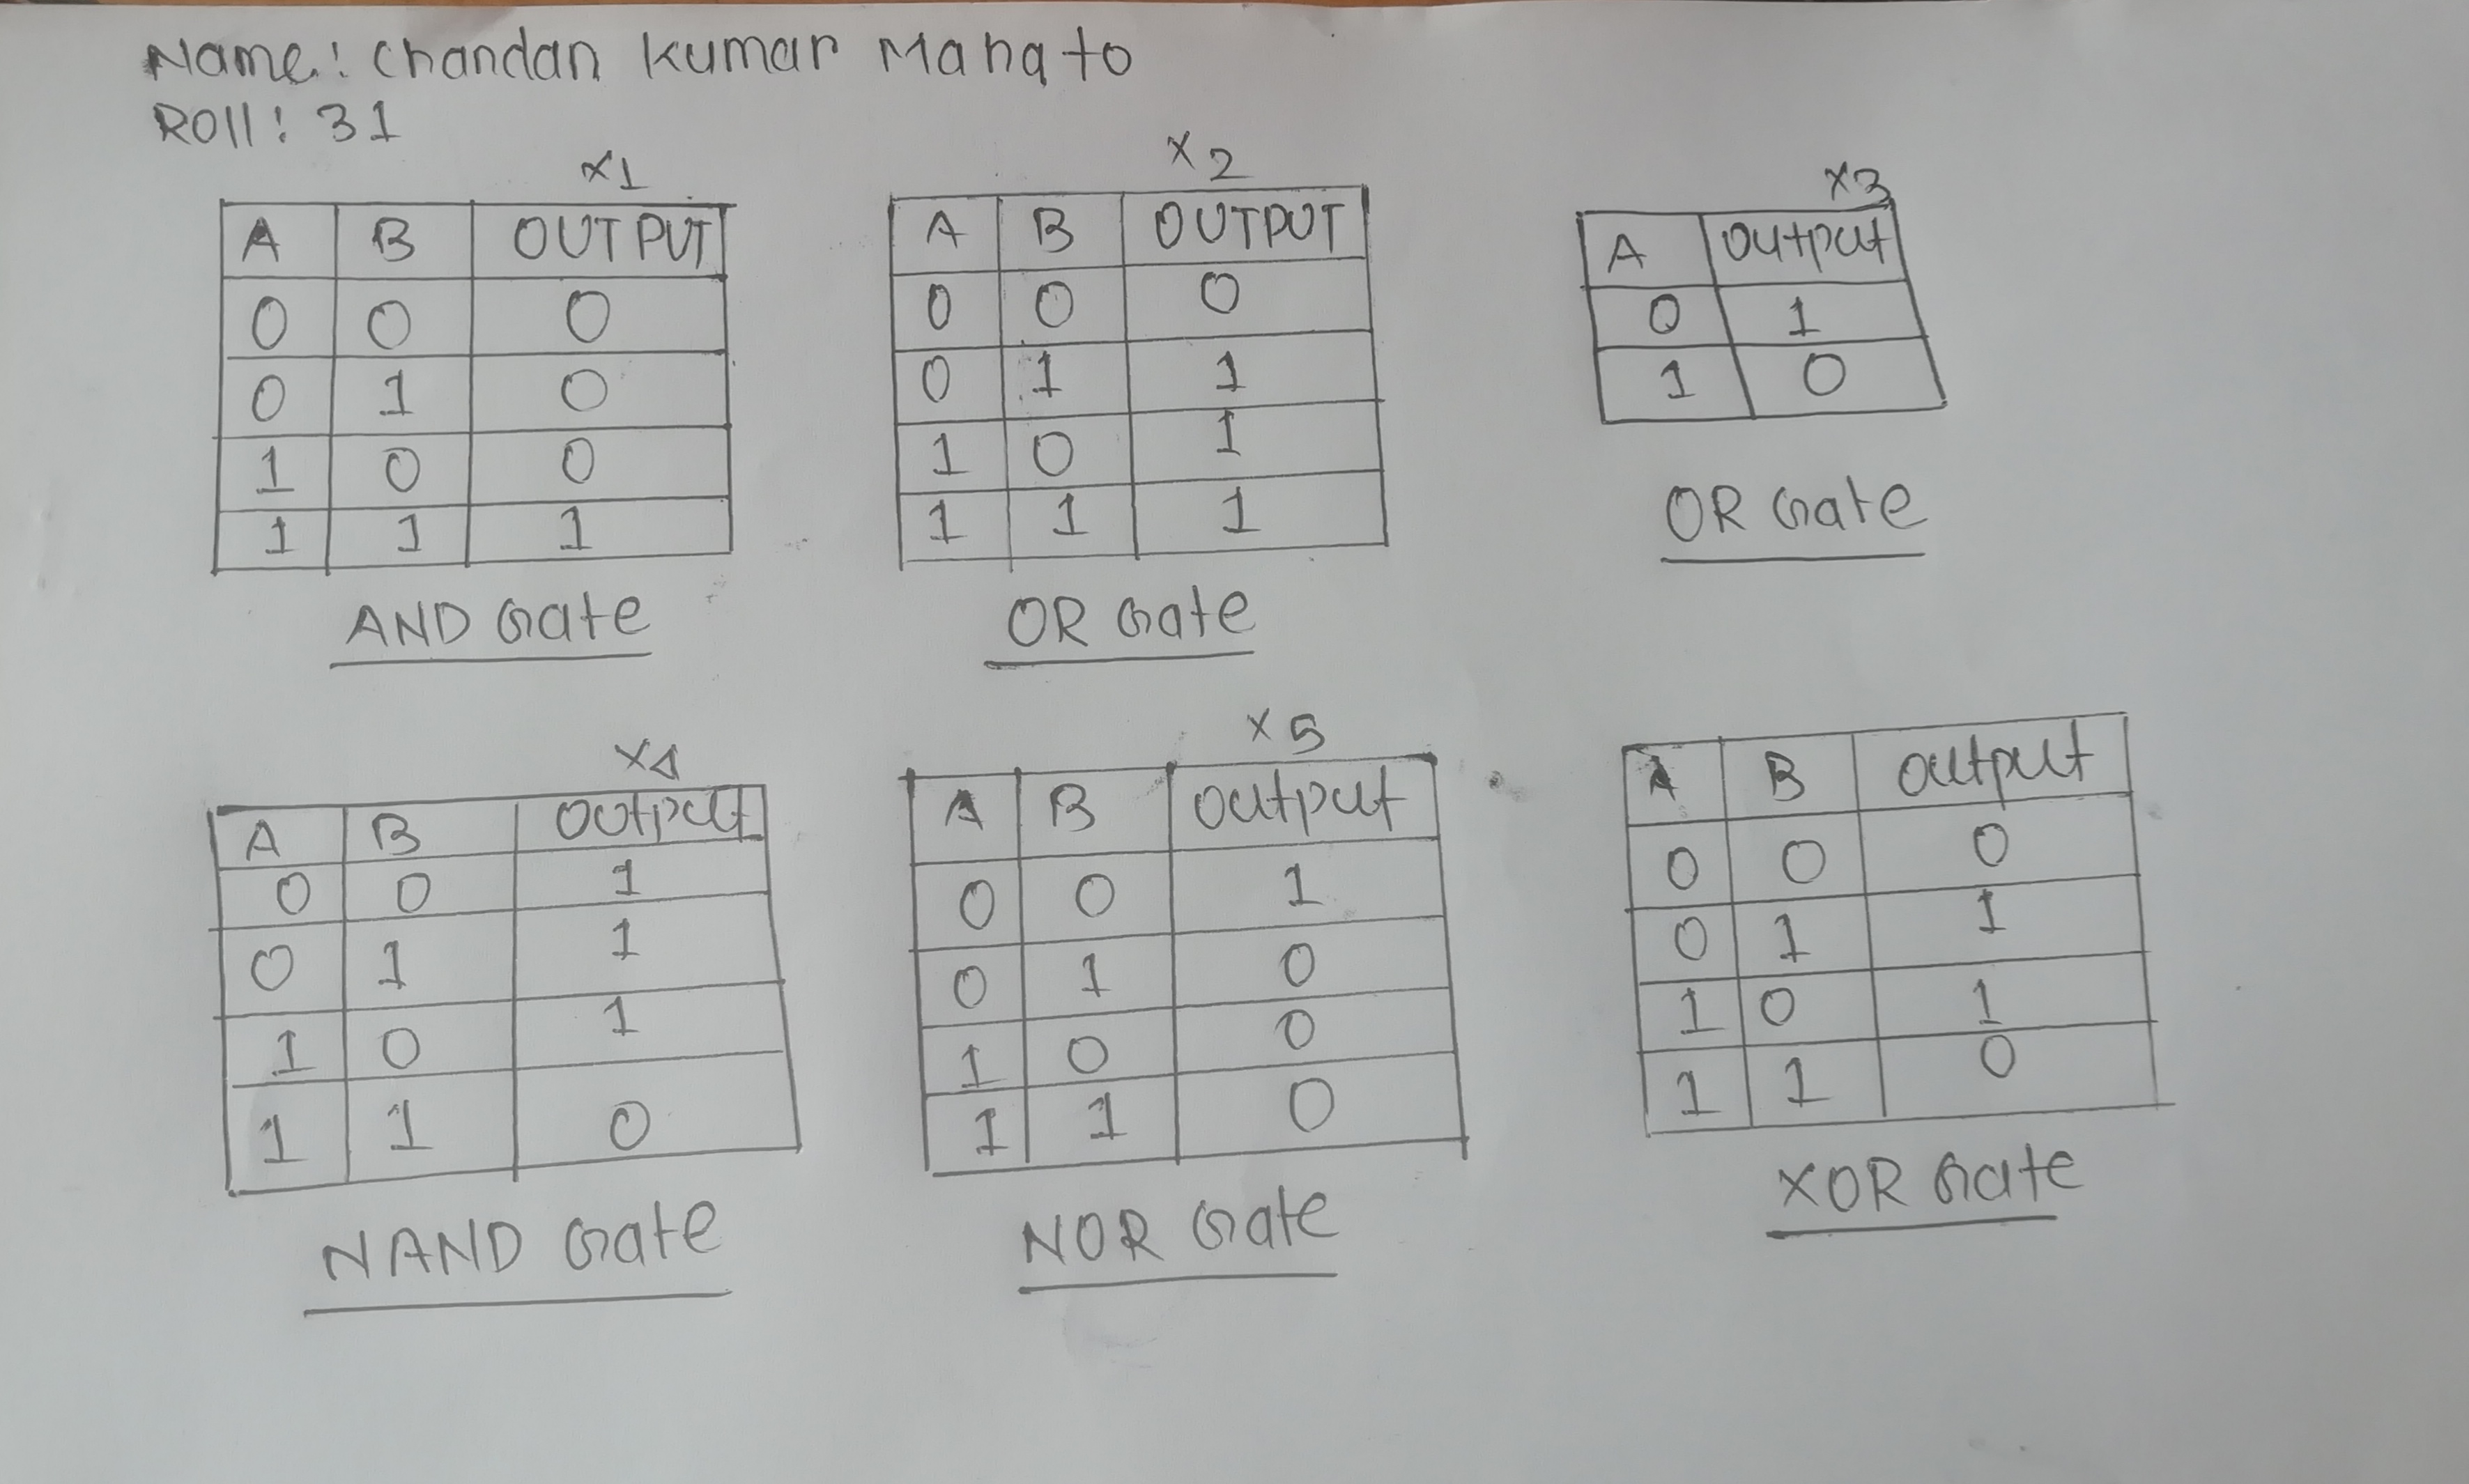 Name: Chandan Kumar Mahato
Roll: 31
X1
A B OUTPUT
0 0 0
0 1 0
1 0 0
1 1 1
AND Gate
X2
A B OUTPUT
0 0 0
0 1 1
1 0 1
1 1 1
OR Gate
X3
A output
0 1
1 0
OR Gate
X4
A B output
0 0 1
0 1 1
1 0 1
1 1 0
NAND Gate
X5
A B output
0 0 1
0 1 0
1 0 0
1 1 0
NOR Gate
A B output
0 0 0
0 1 1
1 0 1
1 1 0
XOR Gate